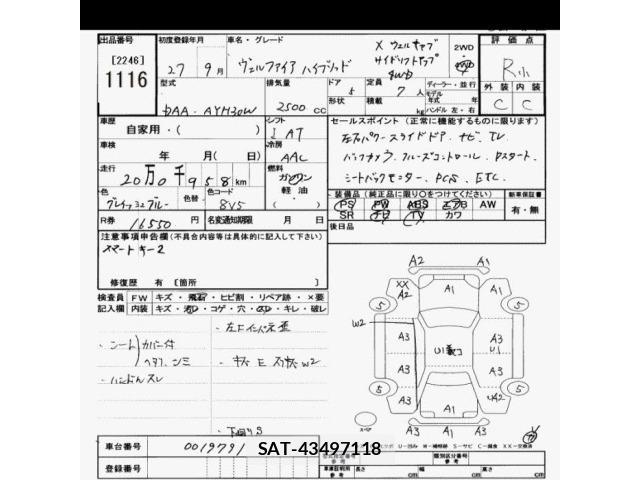 出品番号 初度登録年月 車名・グレード X ウェルキャブ 2WD 評価点
[2246] 27年 9月 ヴェルファイア ハイブリッド サイドリフトアップ 4WD R小
1116 4WD 外装 内装
型式 排気量 ドア 定員 ディーラー・並行
DAA-AYH30W 2500cc 5 7人 C C
形状 積載 kg ハンドル 左・右
車歴 シフト セールスポイント (正常に機能するものに限ります)
自家用・( ) ↓AT 左右パワースライドドア. ナビ. TV
車検 冷房
年 月(日) AAC バックカメラ クルーズコントロール Pスタート
走行 燃料
20万0千958km ガソリン シートバックモニター. PCS. ETC.
色 色替 色コード 軽油
8V5 装備品 (純正品に限り○をつけてください) 新車保証書
PS PW ABS エアB AW 有・無
R券 16550円 名変通知期限 月 日 SR ナビ TV カワ
注意事項申告欄(不具合内容等は具体的に記入して下さい) 後日品
スマートキー2
修復歴 有 [箇所 ]
検査員 FW キズ・飛石・ヒビ割・リペア跡・×要
記入欄 内装 キズ・汚レ・コゲ・穴・キレ・破レ
A2 A1
XX A2 A1 A1
5 5
W2
A3 A3 U1
A3 A3
5 5
A3 A2
A1
A3 A3 A3
シート カバー付
ハンドルスレ
下廻りS
スペア
車台番号 0019791 SAT-43497118
登録番号 車庫証明用 参考 長さ cm 幅 cm 高さ cm
類別区分番号 参考